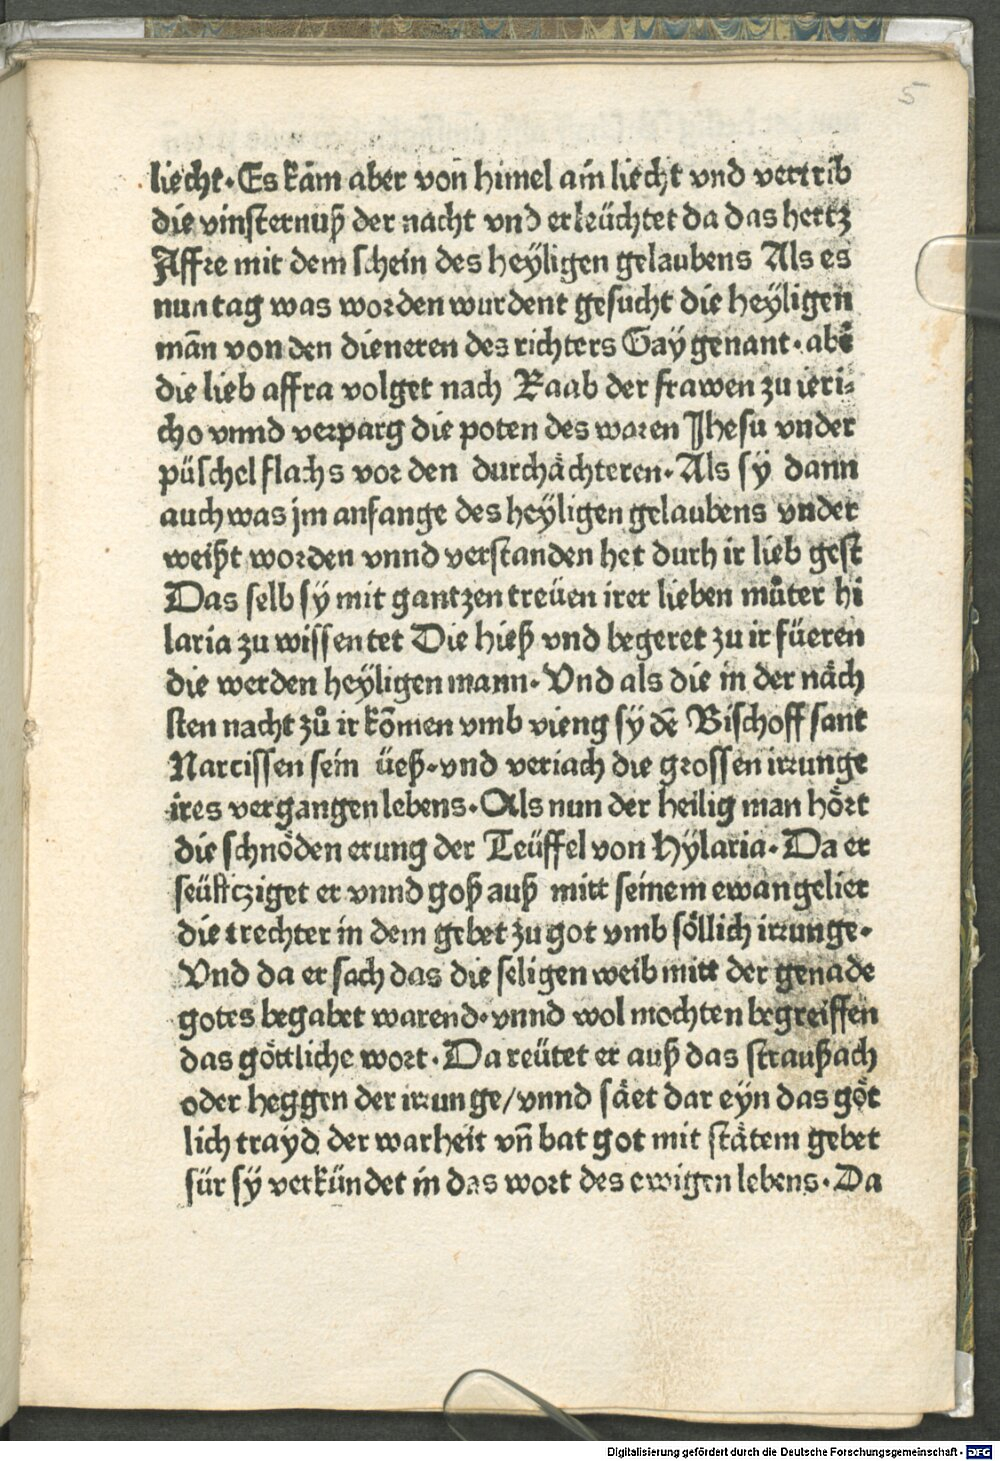 5
liecht· Es kam aber von himel ain liecht vnd vertrib
die vinsternuß der nacht vnd erleüchtet da das hertz
Affre mit dem schein des heÿligen gelaubens Als es
nun tag was worden wurdent gesucht die heÿligen
mān von den dieneren des richters Gaÿ genant· abē
die lieb affra volget nach Raab der frawen zu ieri⸗
cho vnnd verparg die poten des waren Jhesu vnder
püschel flachs vor den durchaͤchteren· Als sÿ dann
auch was jm anfange des heÿligen gelaubens vnder
weißt worden vnnd verstanden het durh ir lieb gest
Das selb sÿ mit gantzen treüen irer lieben muͦter hi
laria zu wissen tet Die hieß vnd begeret zu ir füeren
die werden heÿligen mann· Vnd als die in der naͤch
sten nacht zuͦ ir kōmen vmb vieng sÿ dē Bischoff sant
Narcissen sein üeß· vnd veriach die grossen irrunge
ires vergangen lebens· Als nun der heilig man hoͤrt
die schnoͤden erung der Teüffel von Hÿlaria· Da er
seüftcziget er vnnd goß auß mitt seinem ewangelier
die trechter in dem gebet zu got vmb soͤllich irrunge·
Vnd da er sach das die seligen weib mitt der genade
gotes begabet warend· vnnd wol mochten begreiffen
das goͤttliche wort· Da reütet er auß das straußach
oder heggen der irrunge/ vnnd saͤet dar eÿn das goͤt
lich trayd der warheit vn̄ bat got mit staͤtem gebet
für sÿ verkündet in das wort des ewigen lebens· Da
Digitalisierung gefördert durch die Deutsche Forschungsgemeinschaft - DFG